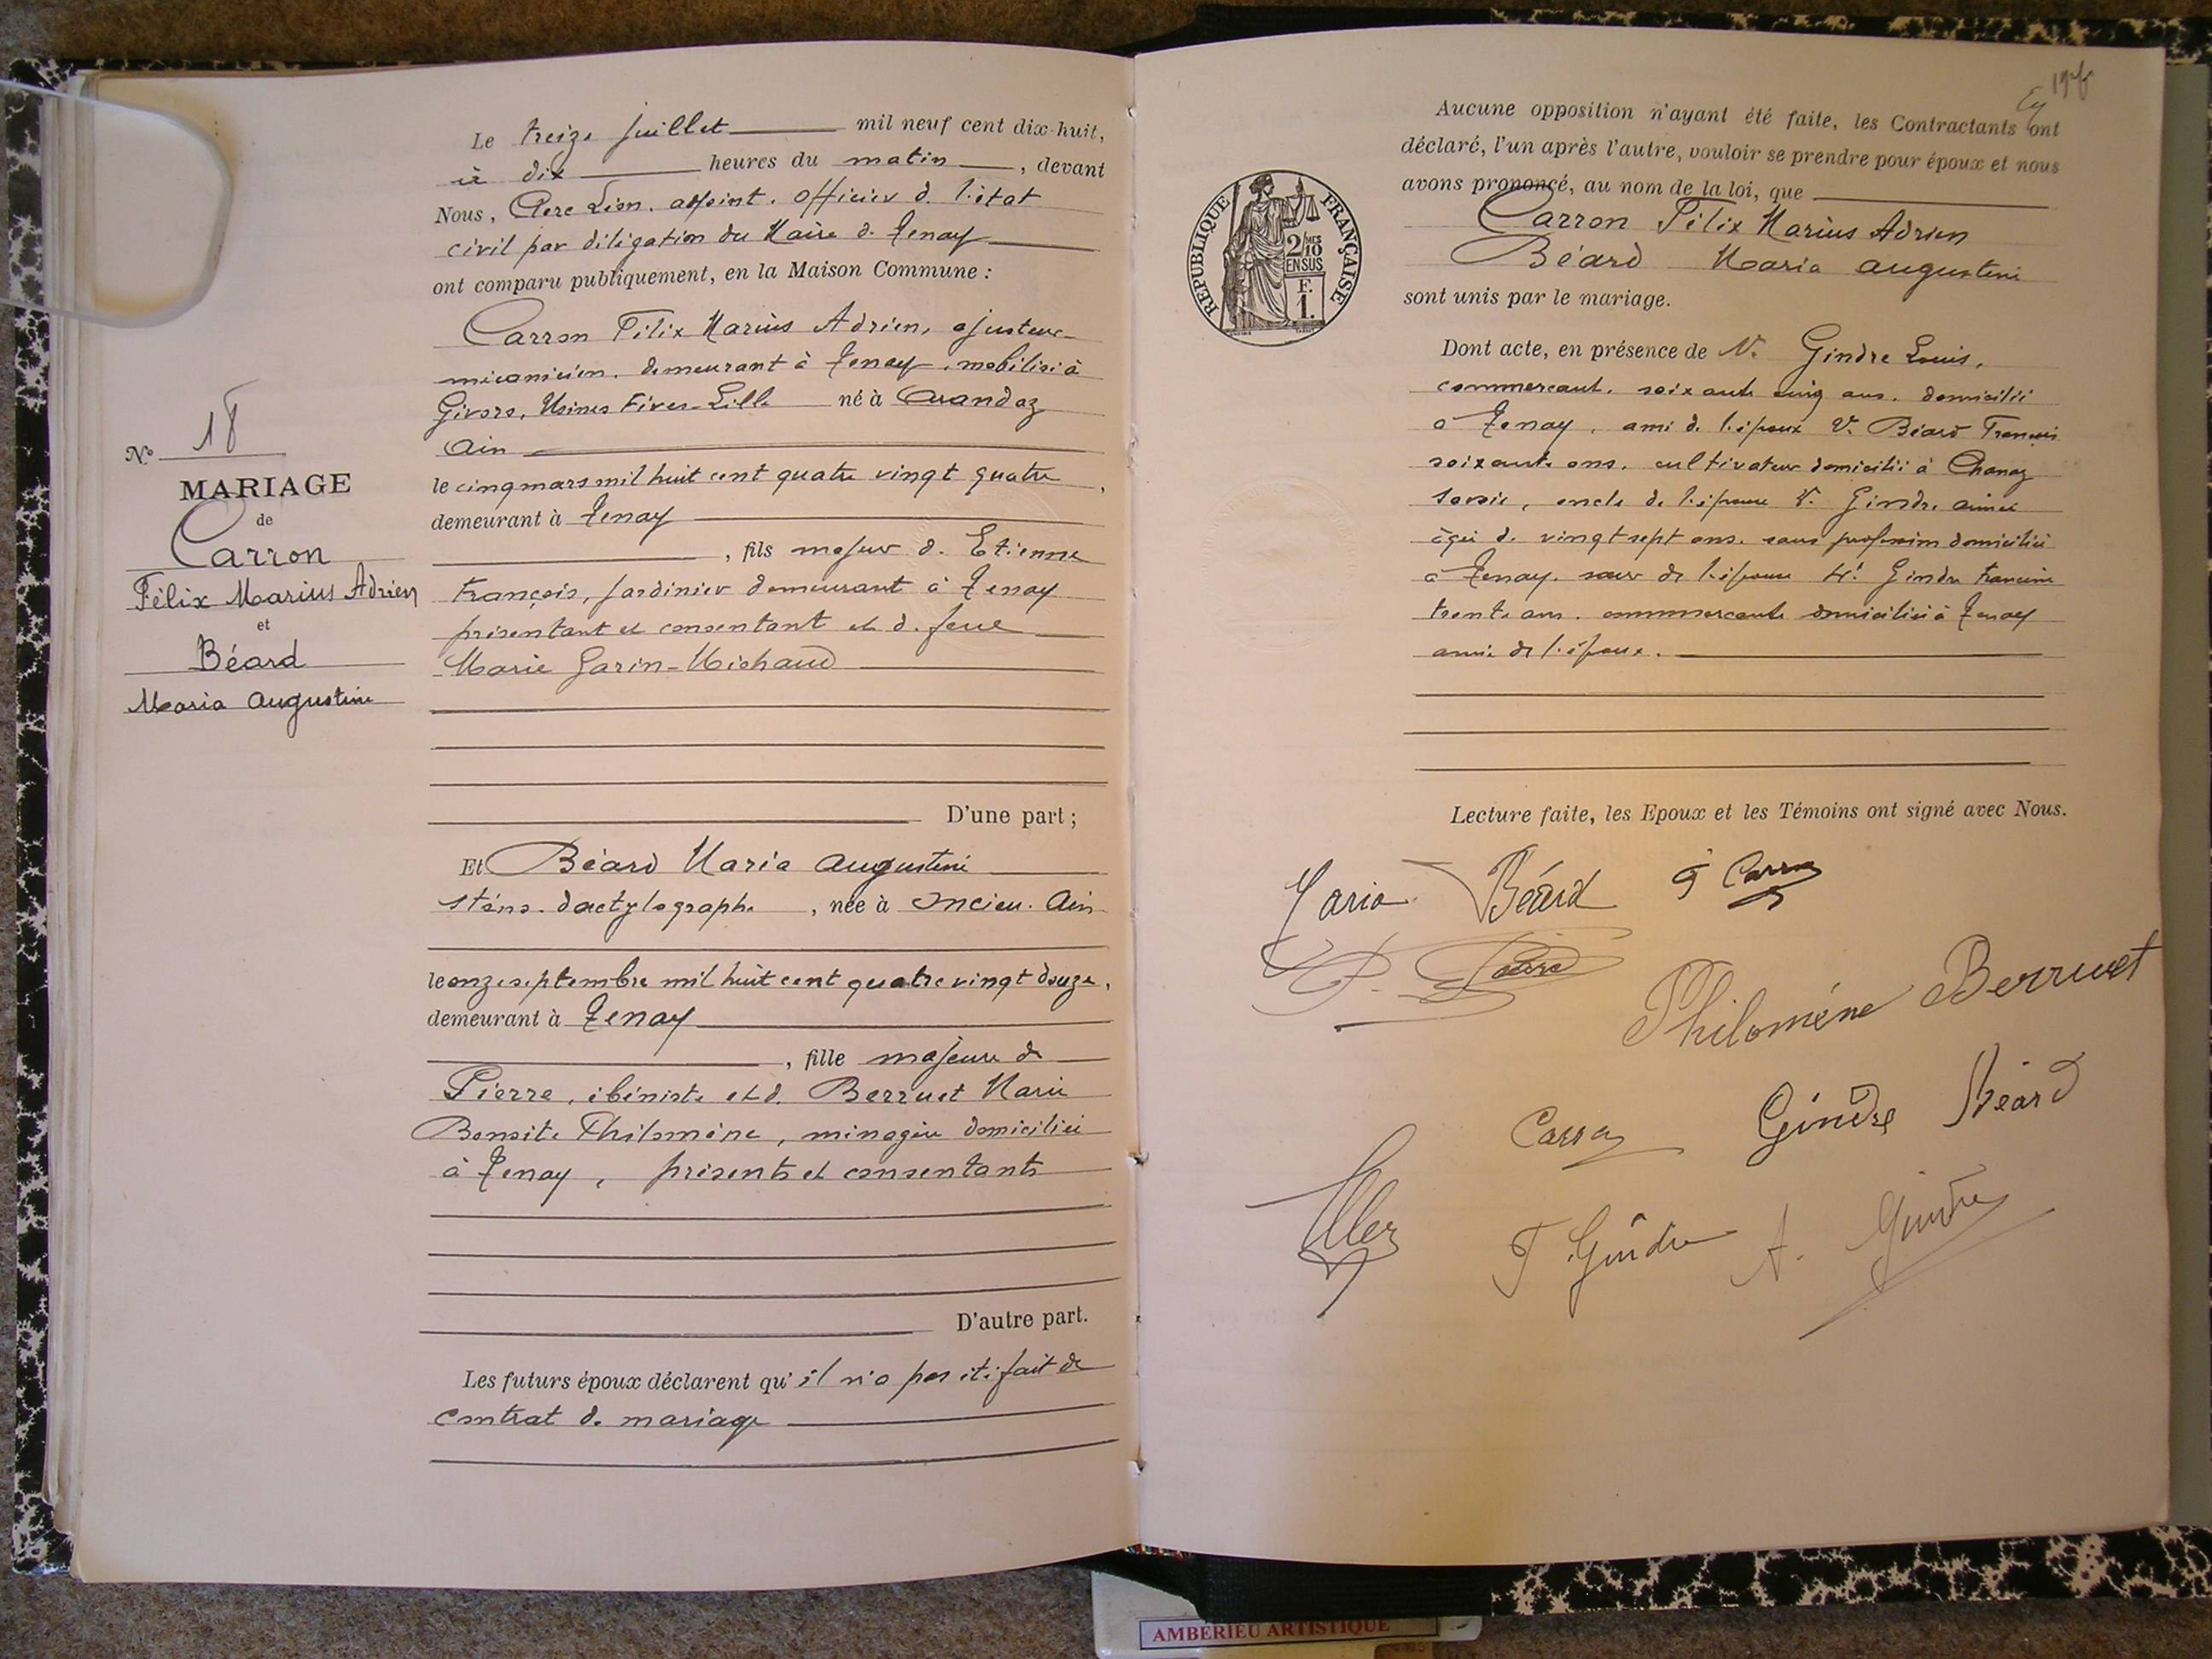 N° 18
MARIAGE
de
Carron
Félix Marius Adrien
et
Béard
Maria Augustine
Le treize juillet mil neuf cent dix-huit,
à dix heures du matin, devant
Nous, Clerc Léon. adjoint. officier de l'état
civil par délégation du Maire de Tenay
ont comparu publiquement, en la Maison Commune :
Carron Félix Marius Adrien, ajusteur
mécanicien. demeurant à Tenay. mobilisé à
Givors, Usines Fives-Lille né à Arandaz
Ain
le cinq mars mil huit cent quatre vingt quatre,
demeurant à Tenay
, fils majeur de Etienne
François, jardinier demeurant à Tenay
présentant et consentant et de feue
Marie Garin-Michaud
D'une part ;
Et Béard Maria Augustine
sténo-dactylographe, née à Oncieu. Ain
le onze septembre mil huit cent quatre vingt douze,
demeurant à Tenay
, fille majeure de
Pierre, ébéniste et de Berruet Marie
Benoite Philomène, ménagère domiciliés
à Tenay, présents et consentants
D'autre part.
Les futurs époux déclarent qu'il n'a pas été fait de
contrat de mariage
Aucune opposition n'ayant été faite, les Contractants ont
déclaré, l'un après l'autre, vouloir se prendre pour époux et nous
avons prononcé, au nom de la loi, que
Carron Félix Marius Adrien
Béard Maria Augustine
sont unis par le mariage.
RÉPUBLIQUE FRANÇAISE
2/10 MES
EN SUS
F.
1.
Dont acte, en présence de M. Gindre Louis,
commerçant. soixante cinq ans. domicilié
à Tenay, ami de l'époux M. Béard François
soixante ans. cultivateur domicilié à Chanaz
Savoie, oncle de l'épouse M. Gindre Aimée
âgée de vingt sept ans. sans profession domiciliée
à Tenay. sœur de l'épouse Gindre Francine
trente ans. commerçante domiciliée à Tenay
amie de l'époux.
Lecture faite, les Epoux et les Témoins ont signé avec Nous.
Maria Béard F Carron
P. Béard
Philomène Berruet
Carron Gindre Béard
F Gindre A. Gindre
AMBERIEU ARTISTIQUE